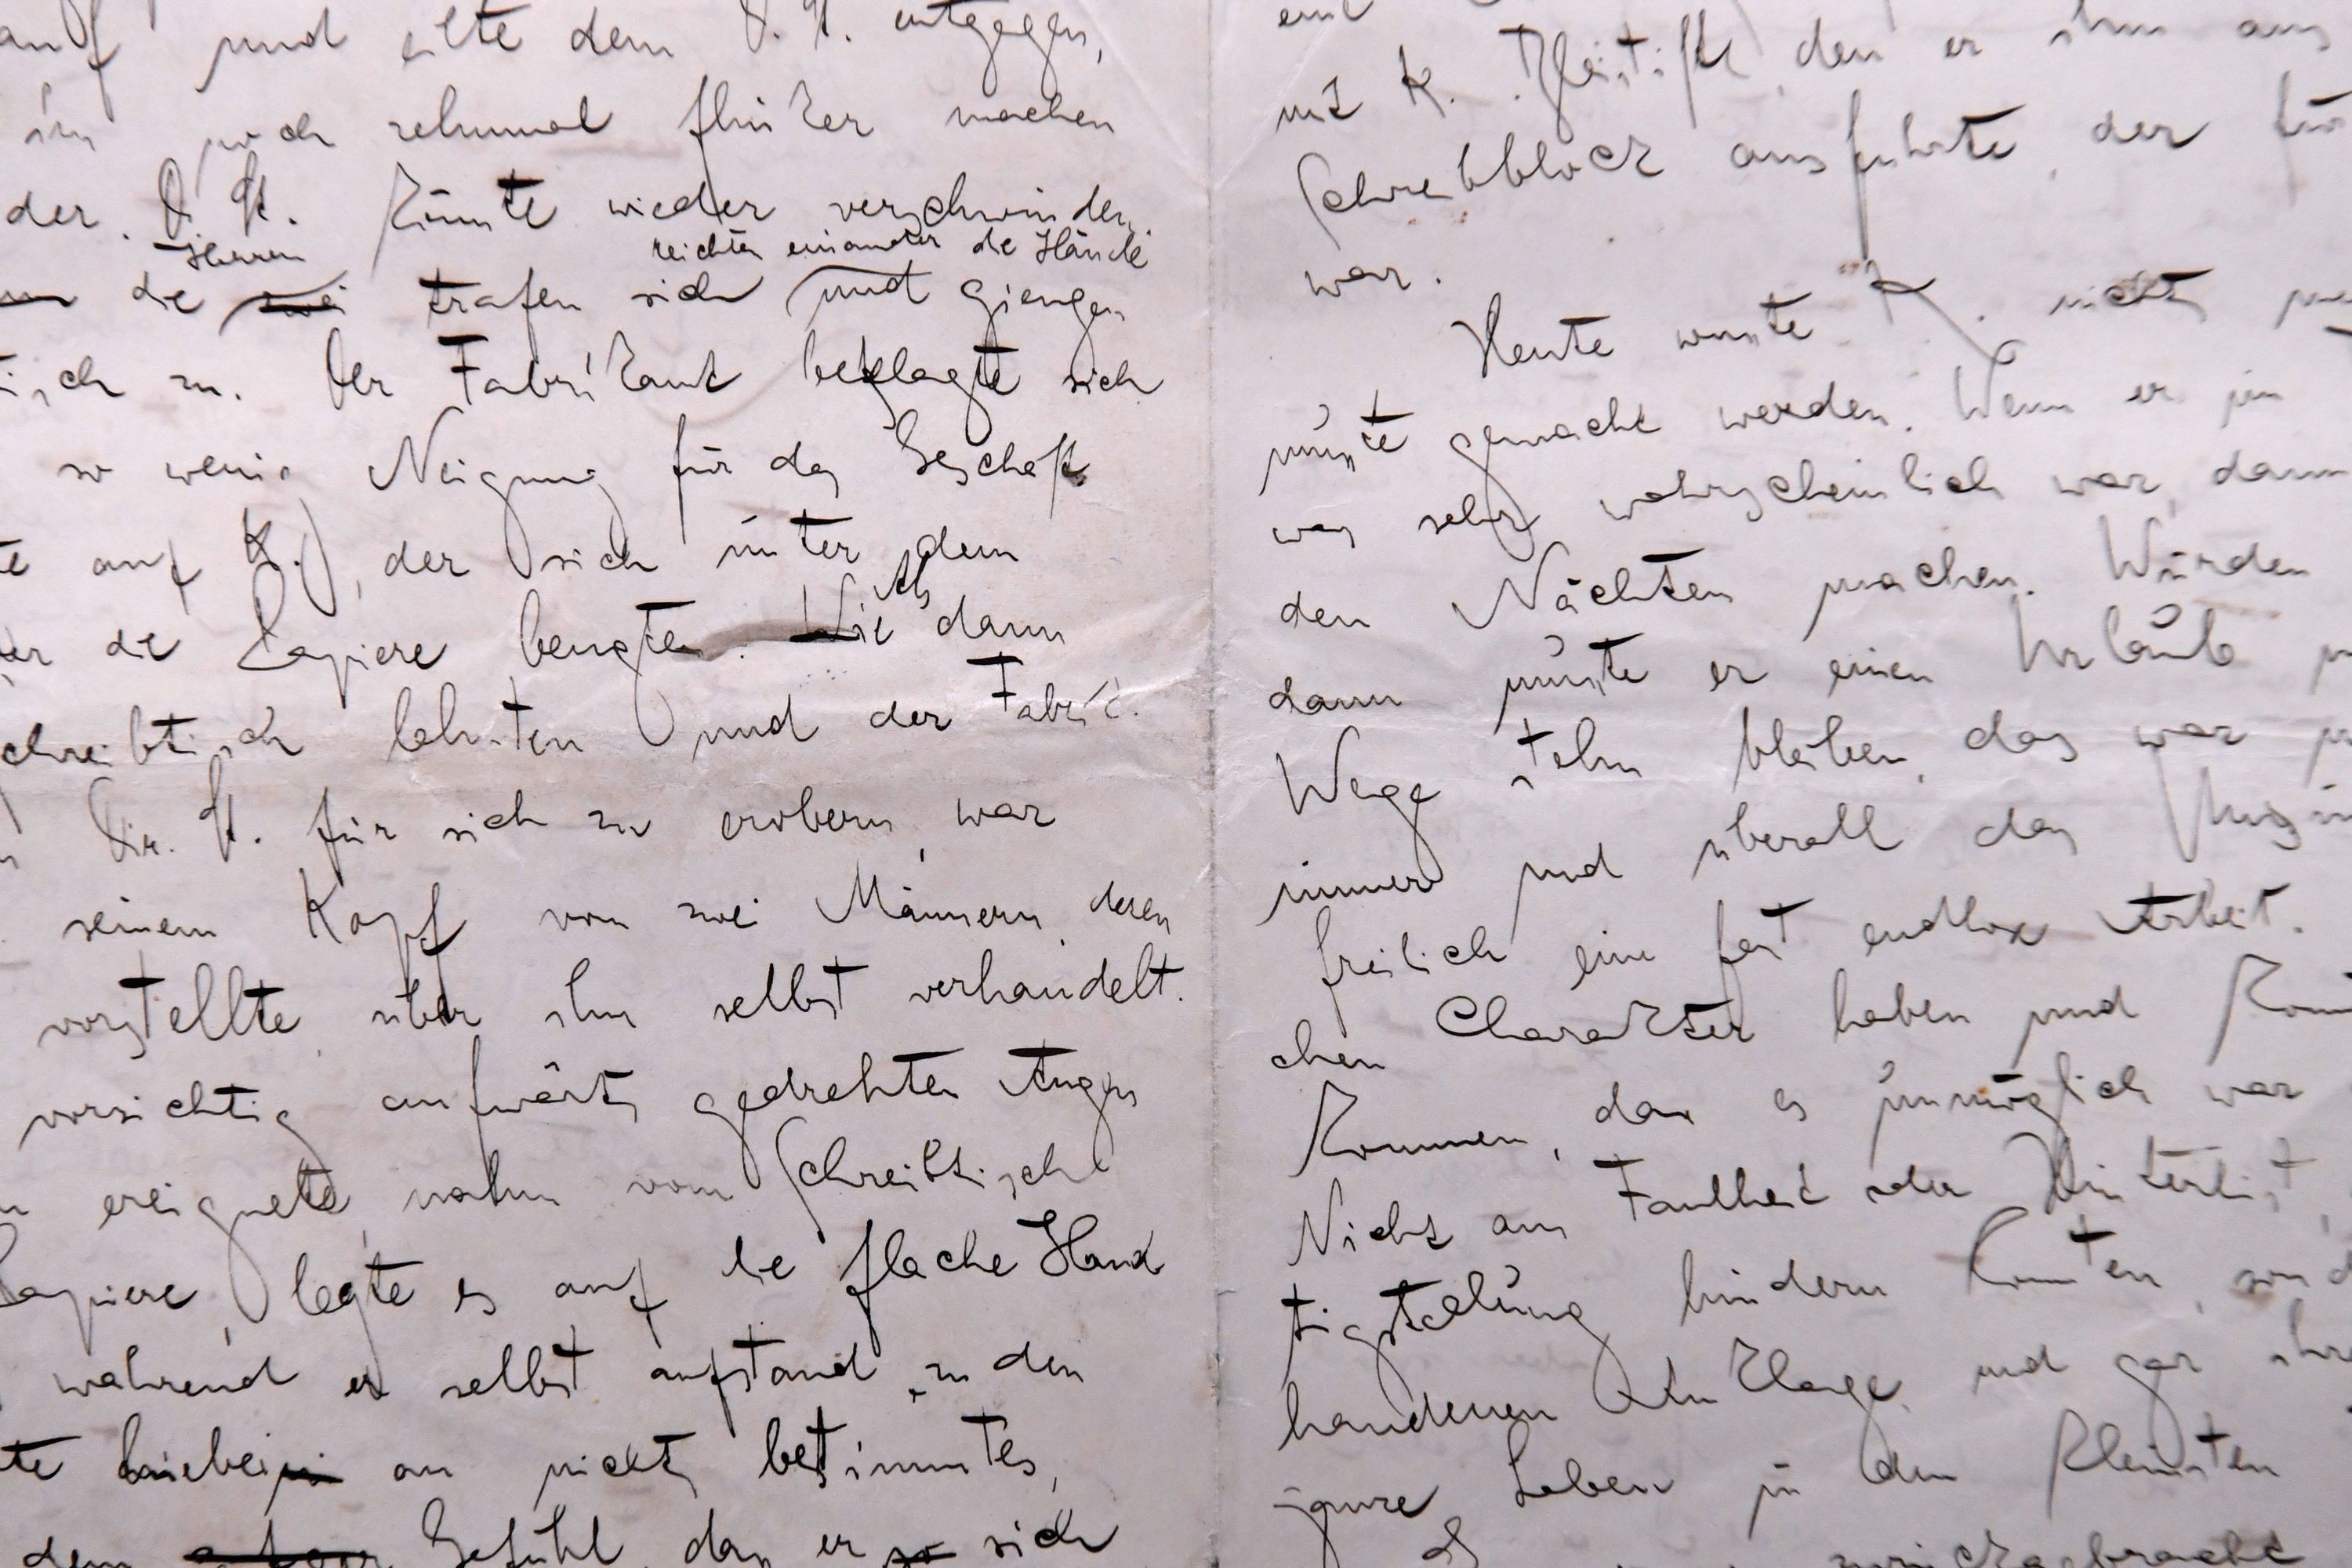 auf und eilte dem D. St. entgegen,
ihn noch schnell flinker machen
der D. St. könnte wieder verschwinden
Herren reichten einander die Hände
die zwei trafen sich und giengen
isch zu. Der Fabrikant beklagte sich
so wenig Neigung für das Geschäft
te auf K., der sich unter dem
Als
er die Papiere beugte. Wie dann
chreibtisch lehnten und der Fabrik.
Dir. St. für sich zu erobern, war
seinem Kopf von zwei Männern, deren
vorstellte, über ihn selbst verhandelt.
vorsichtig aufwärts gedrehten Augen
ereignete, nahm vom Schreibtisch
Papiere, legte es auf die flache Hand
während er selbst aufstand, zu den
te hiebei an nichts bestimmtes,
dem Gefühl, dass er so sich
mit K. Bleistift, den er ihm aus
Schreibblock ausführte, der für
war.
Heute wusste K. nichts
müsste gemacht werden. Wenn er
was sehr wahrscheinlich war, dann
den Nächten machen. Würden
dann müsste er einen Urlaub
Wege stehn bleiben, das war
immer und überall das
freilich eine fast endlose Arbeit.
chen Charakter haben und
kommen, dass es unmöglich war
Nicht aus Faulheit oder Hinterlist,
tigstellung hindern konnten,
handenen Anklage und gar ihre
ganze Leben in den kleinsten
zurückgebracht